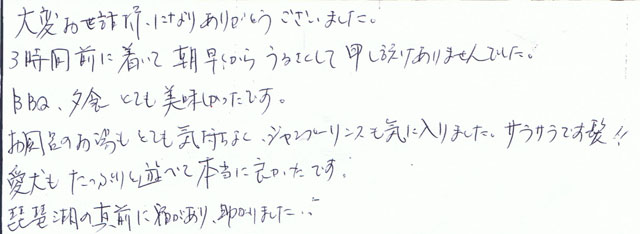 大変お世話になりありがとうございました。
3時間前に着いて朝早くからうるさくして申し訳ありませんでした。
BBQ、夕食とても美味しかったです。
お風呂のお湯もとても気持ちよく、シャンプーリンスも気に入りました。サラサラです髪!!
愛犬もたっぷりと遊べて本当に良かったです。
琵琶湖の真前に宿があり、助かりました